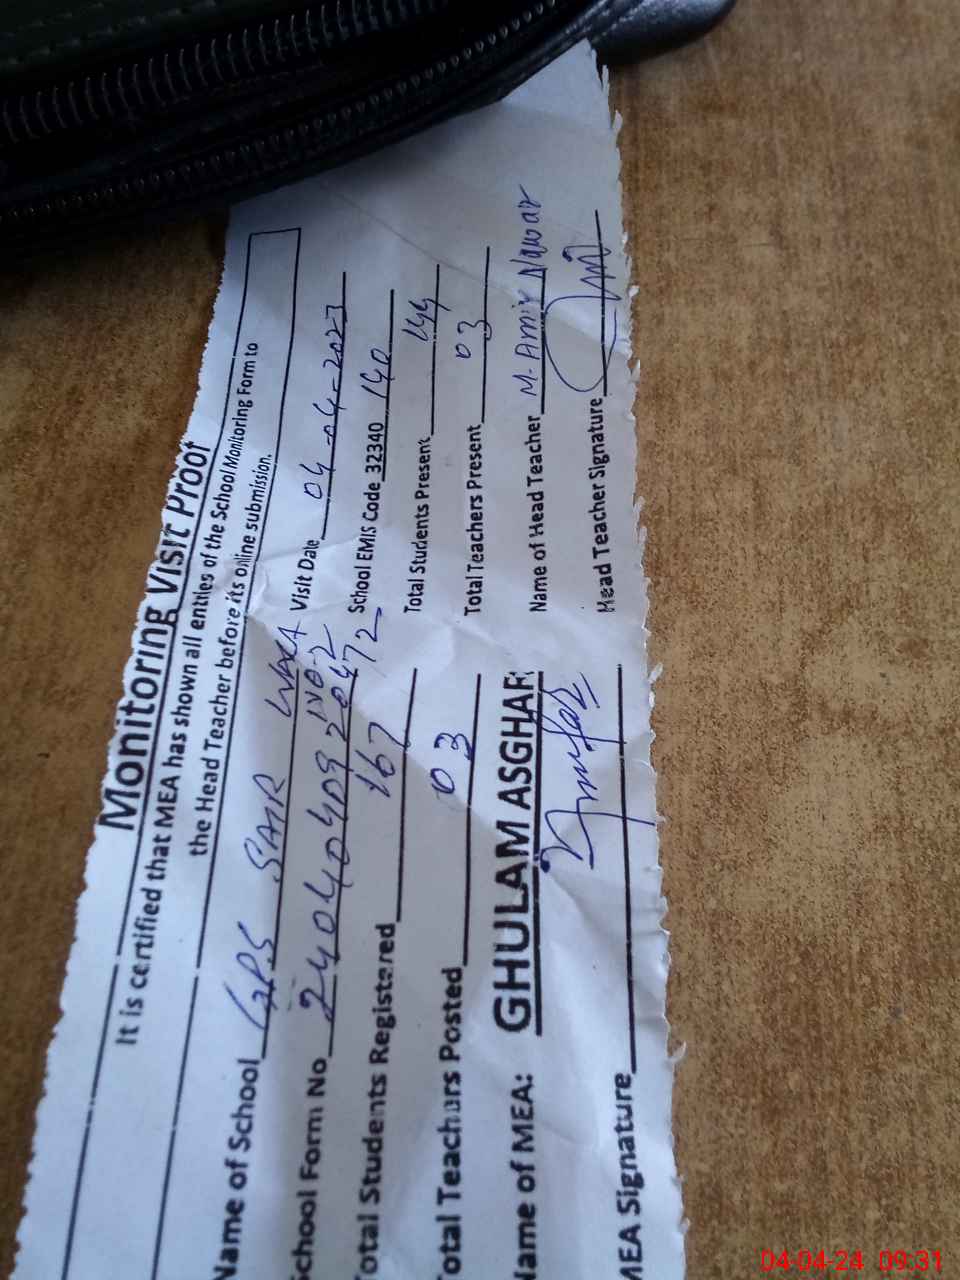 Monitoring Visit Proof
It is certified that MEA has shown all entries of the School Monitoring Form to
the Head Teacher before its online submission.
Name of School G.P.S SAIR WALA NO-2 Visit Date 04-04-2023
School Form No 2404040920472 School EMIS Code 32340 140
Total Students Registered 167 Total Students Present 144
Total Teachers Posted 03 Total Teachers Present 03
Name of MEA: GHULAM ASGHAR Name of Head Teacher M. Amir Nawaz
MEA Signature Head Teacher Signature
04-04-24 09:31